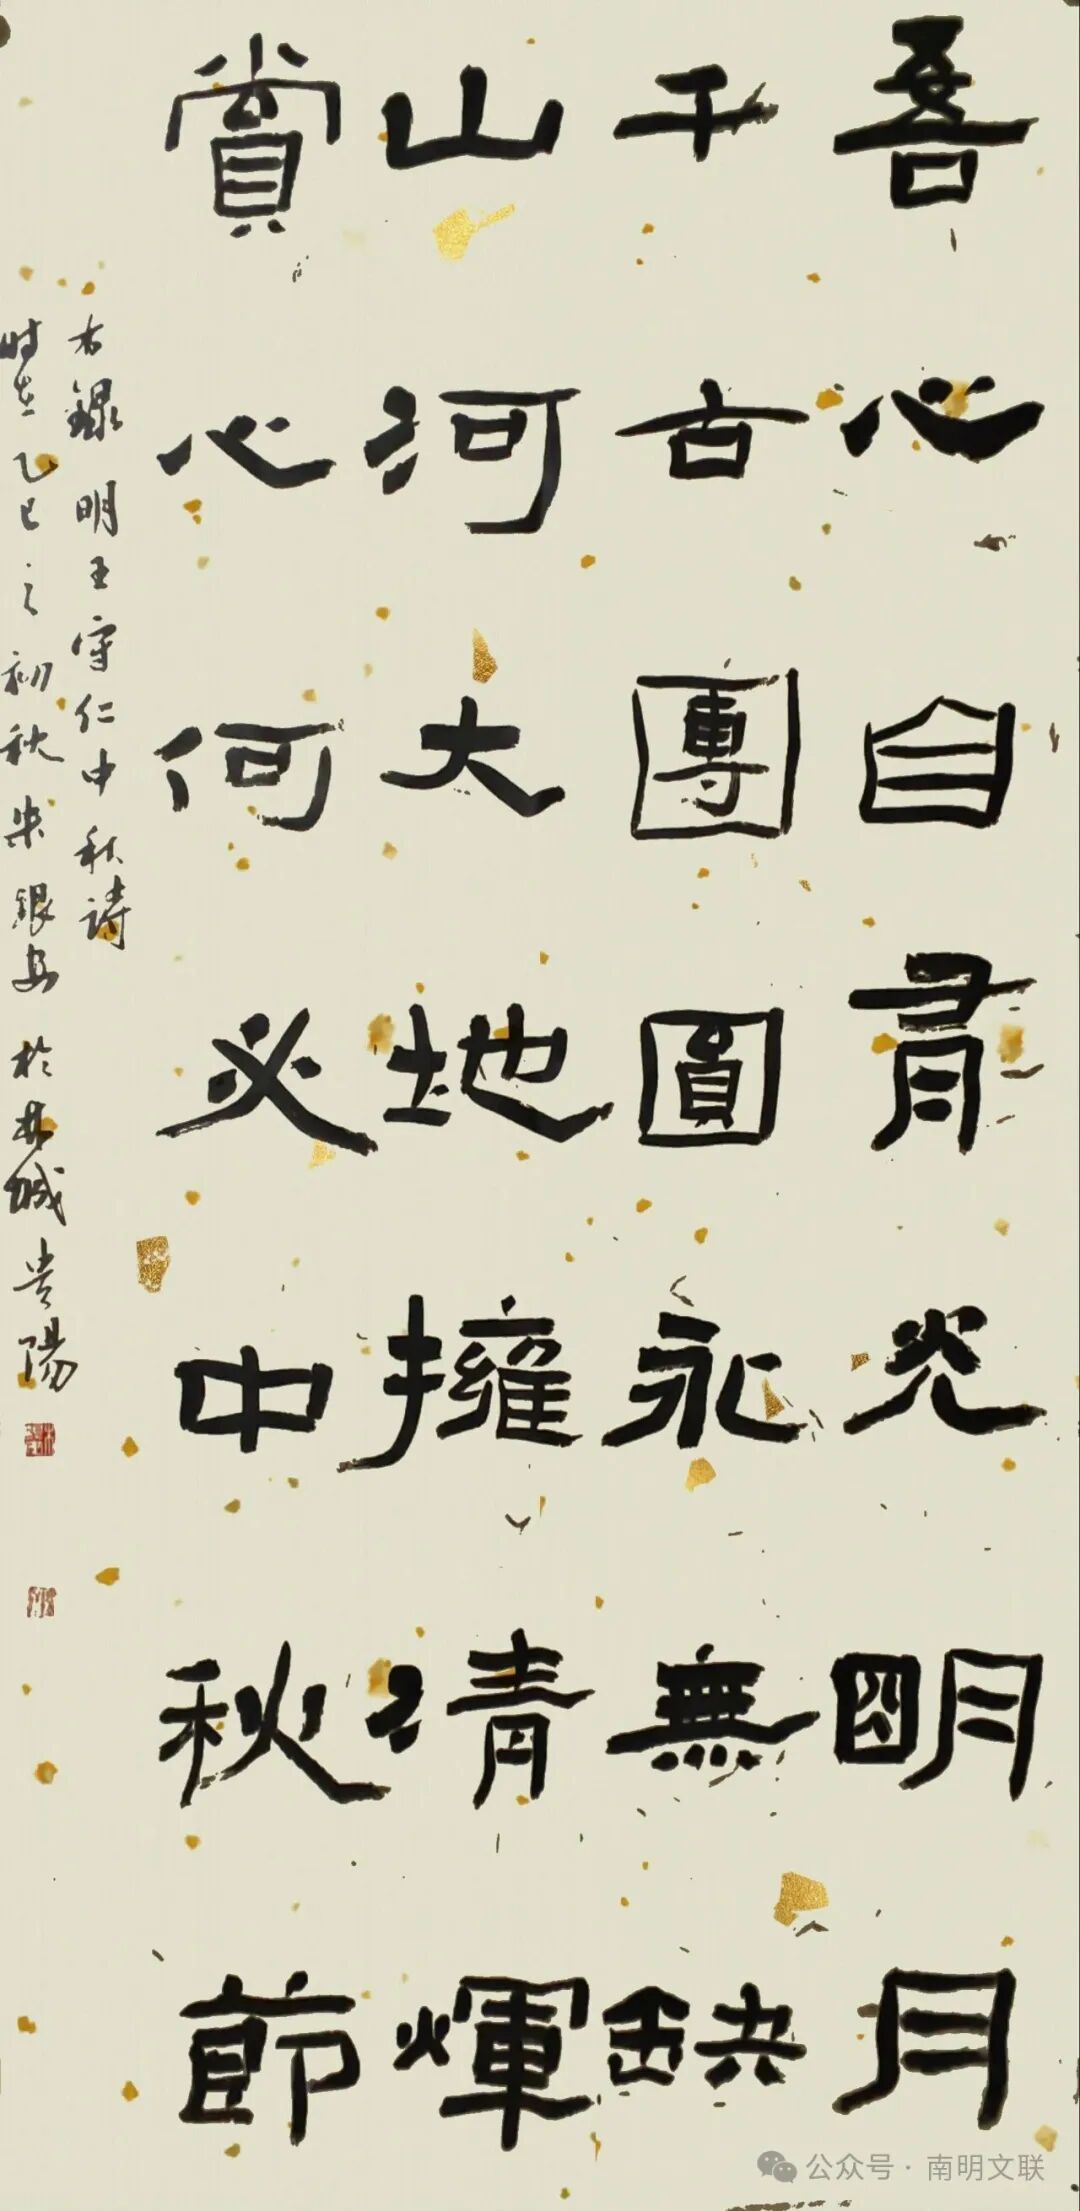 吾心自有光明月
千古團圓永無缺
山河大地擁清輝
賞心何必中秋節
右錄明王守仁中秋詩
時在乙巳之初秋 銀安於林城貴陽
公众号·南明文联